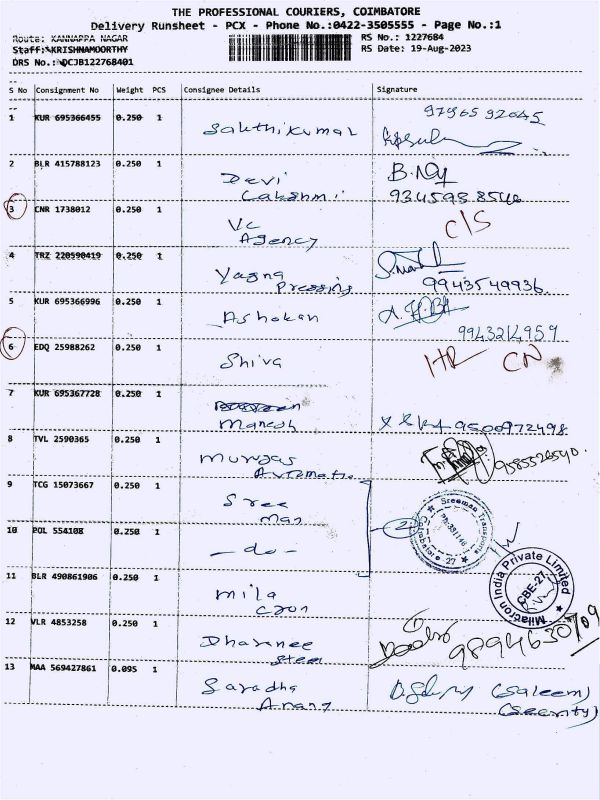 THE PROFESSIONAL COURIERS, COIMBATORE
Delivery Runsheet - PCX - Phone No.:0422-3505555 - Page No.:1
Route: KANNAPPA NAGAR RS No.: 1227684
Staff: KRISHNAMOORTHY RS Date: 19-Aug-2023
DRS No.: DCJB122768401
S No Consignment No Weight PCS Consignee Details Signature
1 KUR 695366455 0.250 1 Sakthikumar 9796592645
2 BLR 415788123 0.250 1 Devi B.
Lakshmi
3 CNR 1738012 0.250 1 Vc C/S
Agency
4 TRZ 220590419 0.250 1 Yagna
Pressing 9943549936
5 KUR 695366996 0.250 1 Ashokan
9943214959
6 EDQ 25988262 0.250 1 Shiva HR CN
7 KUR 695367728 0.250 1
Manesh 9500972498
8 TVL 2590365 0.250 1 Murugas 9585526540
9 TCG 15073667 0.250 1 Sree
Man
10 POL 554108 0.250 1 - do - 2
Sreeman Transports
Coimbatore 27
11 BLR 490861906 0.250 1 mila
cron
Milacron India Private Limited
CBE-27
12 VLR 4853258 0.250 1 Dharnee
Steel 9894630709
13 MAA 569427861 0.095 1 Saradha (Saleem)
(Security)